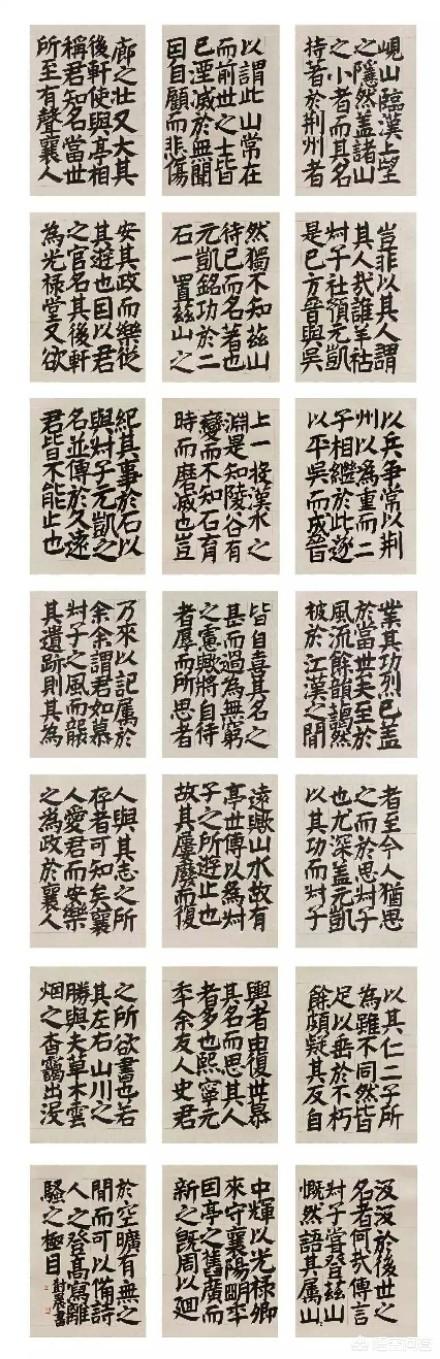 峴山臨漢上望
之隱然蓋諸山
之小者而其名
持著於荆州者
豈非以其人謂
其人㢤誰羊祜
叔子杜預元凱
是已方晉與吳
以兵争常以荆
州以為重而二
子相繼於此遂
以平吳而成晉
業其功烈已盖
於當世矣至於
風流餘韻藹然
被於江漢之間
者至今人猶思
之而於思叔子
也尤深盖元凱
以其功而叔子
以其仁二子所
為雖不同然皆
足以垂於不朽
餘頗疑其反自
汲汲於後世之
名者何㢤傳言
叔子嘗登兹山
慨然語其属山
以謂此山常在
而前世之士皆
已湮滅於無聞
因自顧而悲傷
然獨不知兹山
待已而名著也
元凱銘功於二
石一置兹山之
上一投漢水之
淵是知陵谷有
變而不知石有
時而磨滅也豈
皆自喜其名之
甚而過為無窮
之慮歟將自待
者厚而所思者
遠歟山水故有
亭世傳以為叔
子之所遊止也
故其屢廢而復
興者由復世慕
其名而思其人
者多也熙寧元
年余友人史君
中輝以光禄卿
來守襄陽明年
因亭之舊廣而
新之既周以廻
廊之壮又大其
後軒使與亭相
稱君知名當世
所至有聲襄人
安其政而樂從
其遊也因以君
之官名其後軒
為光禄堂又欲
紀其事於石以
與叔子元凱之
名並傳於久遠
君皆不能止也
乃來以記属於
余余謂君如慕
叔子之風而襲
其遺跡則其為
人與其志之所
存者可知矣襄
人愛君而安樂
之為政於襄人
之所欲書也若
其左右山川之
勝與夫草木雲
烟之杳靄出没
於空曠有無之
間而可以備詩
人之登高寫離
騷之極目
悟空问答